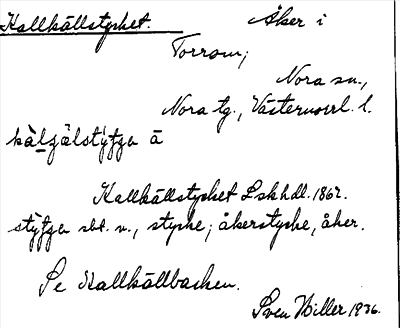 Kallkällstycket. Åker i
Torrom;
Nora sn.,
Nora tg., Västernorrl. l.
Kallkällstycket Lskhdl. 1862.
sbt. n., stycke; åkerstycke, åker.
Se Kallkällbacken.
Sven Hiller 1936.